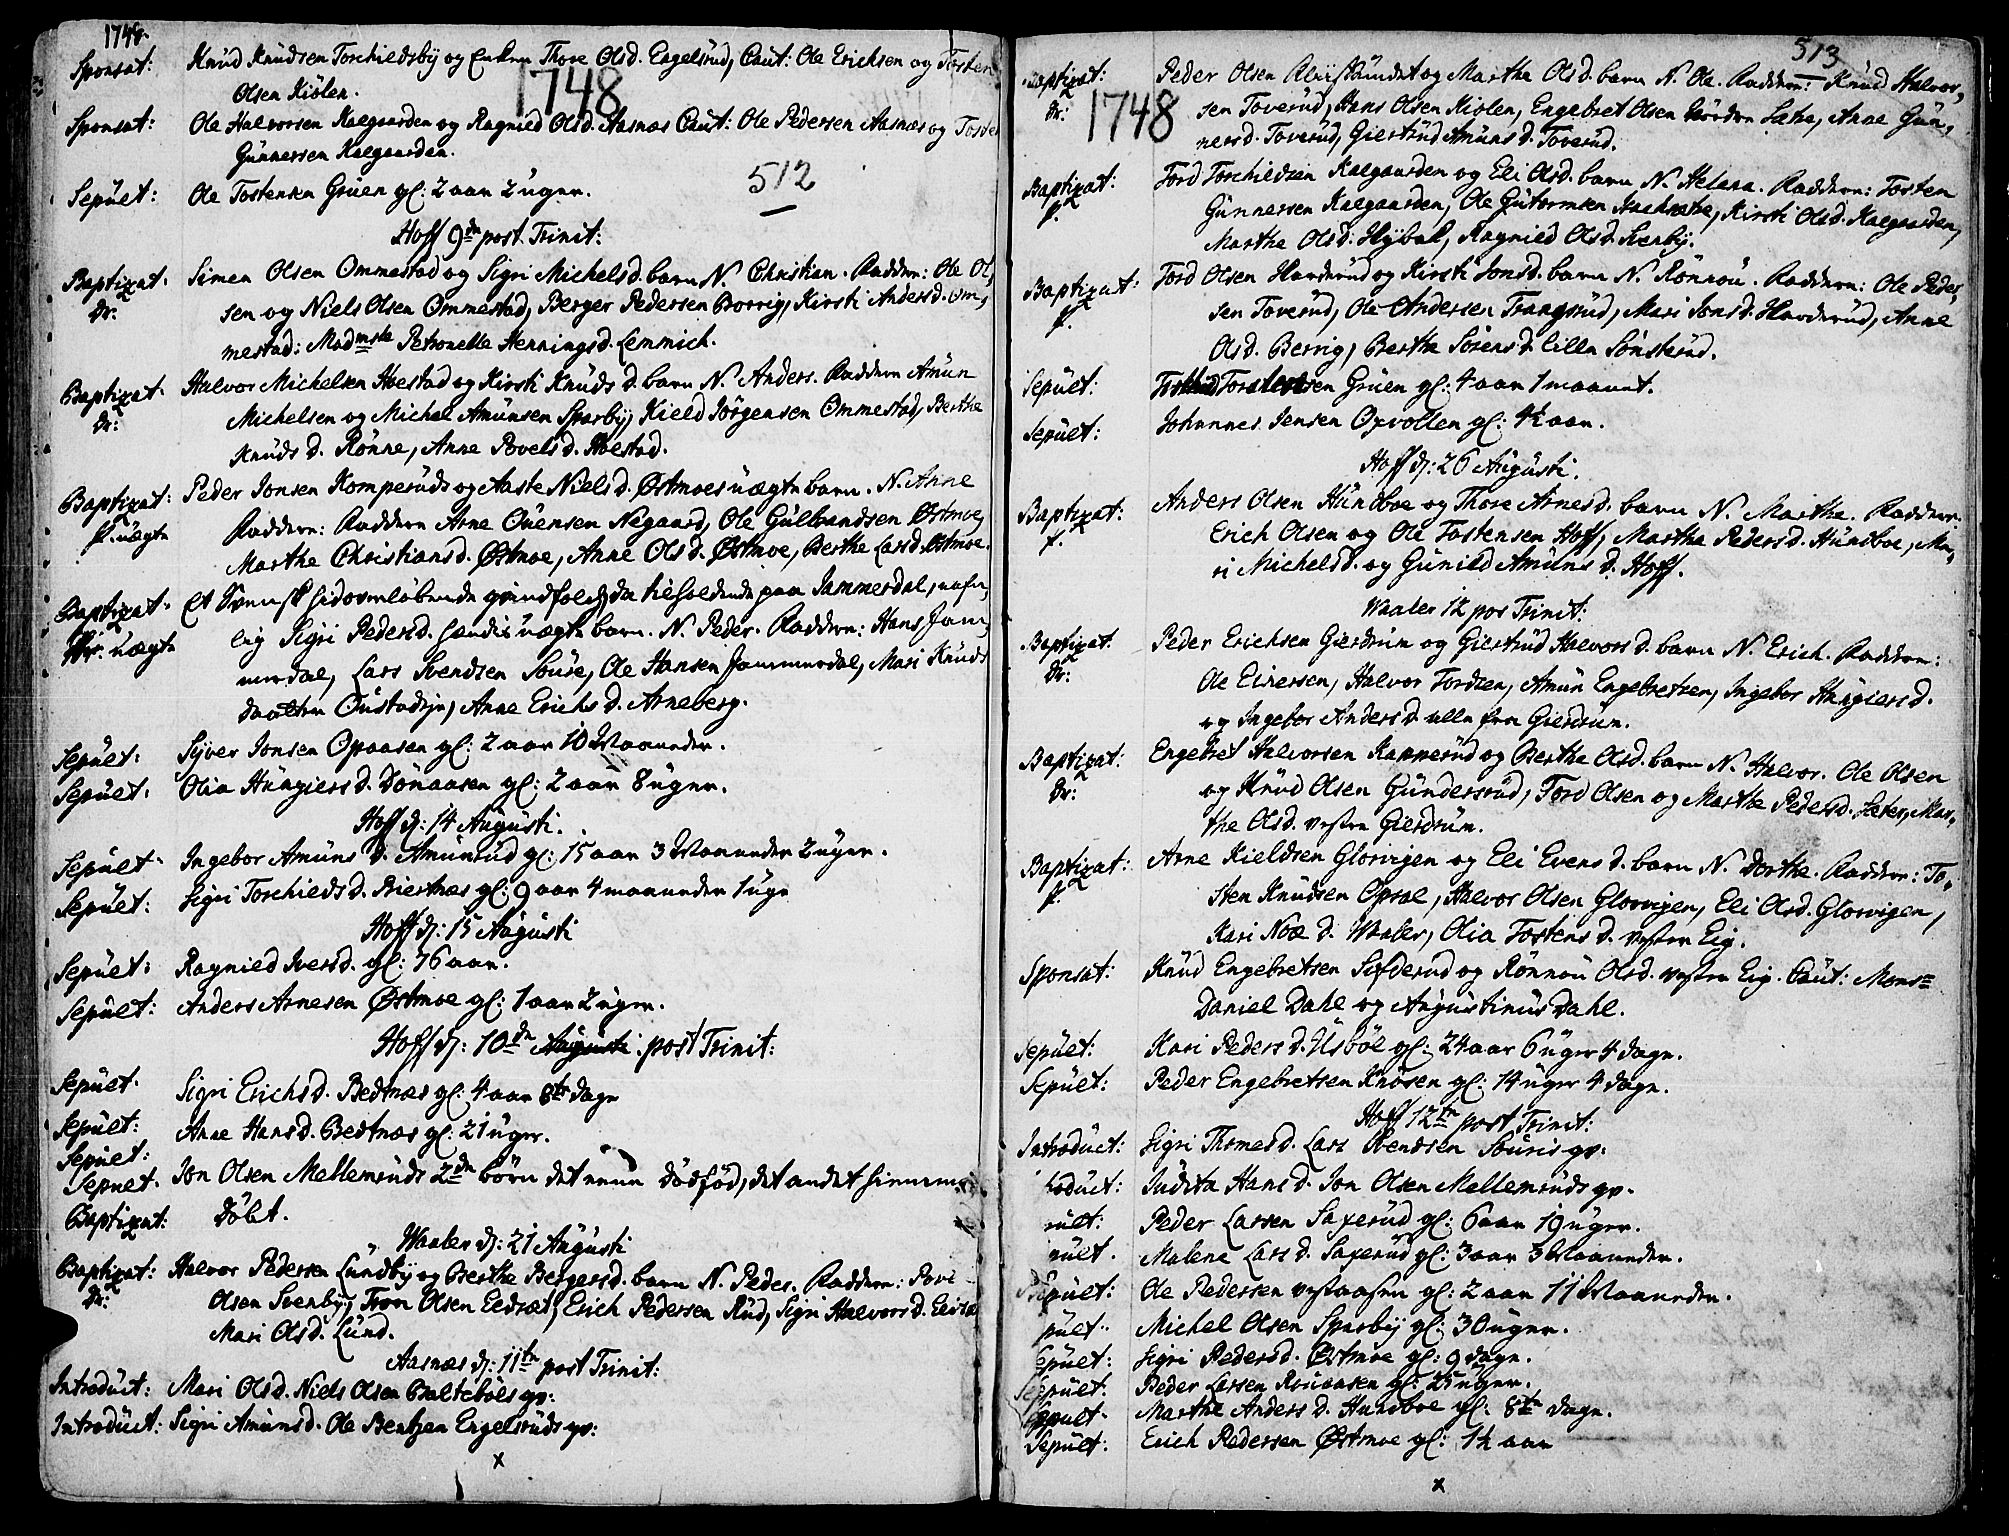 1748.
Sponsat: Knud Knudsen Torchieldsby og Enken Thore Olsd. Engelsrud, Caut: Ole Erichsen og Tosten
Olsen Kiölen.
1748
Sponsat: Ole Halvorsen Kalgaarden og Ragnild Olsd. Aasnæs Caut: Ole Pedersen Aasnæs og Tosten
Gunnersen Kalgaarden.
512
Sepult: Ole Tostensen Gruen gl: 2 aar 2 uger.
Hoff 9de post Trinit:
Baptizat. Simen Olsen Ommestad og Sigri Michelsd. barn N. Christian. Faddere: Ole Ol,
Dr: sen og Niels Olsen Ommestad, Berger Pedersen Borrig, Kirsti Andersd. Om,
mestad: Madmslle Petronelle Henningsd. Lemmich.
Baptizat. Halvor Michelsen Hoestad og Kirsti Knuds d. barn N. Anders. Faddere Amun
Dr: Michelsen og Michel Amunsen Sparby, Kield Jörgensen Ommestad, Berthe
Knuds d. Rönne, Anne Povels d. Hoestad.
Baptizat: Peder Jonsen Komperuds og Aaste Niels d. Østmoes uægte barn. N. Anne
P. uægte Faddere: Faddere Arne Ouensen Negaard, Ole Gulbrandsen Østmoe,
Marthe Christiansd. Østmoe, Anne Olsd. Østmoe, Berthe Larsd. Østmoe.
Baptizat. Et Svensk hidoverløbende qvindfolch, der tilholdende paa Jammerdal, nafn,
Dr: uægte lig Sigri Pedersd. hendis uægte barn. N. Peder. Faddere: Hans Jam,
merdal, Lars Svendsen Souse, Ole Hansen Jammerdal, Mari Knuds
daatter Oustadsje, Anne Erichs d. Arneberg.
Sepult: Syver Jonsen Opaasen gl: 2 aar 10 Maaneder.
Sepult. Olia Hungiers d. Donaasen gl: 2 aar 8 uger.
Hoff d: 14 Augusti.
Sepult. Ingebor Amuns d. Amunrud gl: 15 aar 3 Maaneder 2 uger.
Sepult: Sigri Torchields d. Biertnæs gl: 9 aar 4 maaneder 1 uge
Hoff d: 15 Augusti
Sepult: Ragnild Ivers d. gl: 76 aar.
Sepult: Anders Arnesen Østmoe gl: 1 aar 2 uger.
Hoff d: 10de Augusti. post Trinit:
Sepult. Sigri Erichs d. Bedtnæs gl: 4 aar 8te dage
Sepult: Anne Hans d. Bedtnæs gl: 21 uger.
Sepult:
Sepult. Jon Olsen Mellemruds 2de börn det eene dödfød, det andet hiemme
Baptizat: döbt.
Waaler d: 21 Augusti
Baptizat: Halvor Pedersen Lundby og Berthe Bergersd. barn N. Peder. Faddere:
Dr: Olsen Svenby, Tron Olsen Eidsæt, Erich Pedersen Rud, Sigri Halvors d.
Mari Olsd. Lund.
Aasnæs d: 11te post Trinit:
Introduct: Mari Olsd. Niels Olsen Baltebøls qv:
Introduct: Sigri Amunsd. Ole Bentzen Engelsruds qv:
x
513
Baptizat: Peder Olsen og Marthe Olsd. barn N. Ole. Faddere: Knud Halvor,
Dr: 1748 sen Toverud, Hans Olsen Kiölen, Engebret Olsen Nörder Sæte, Anne Gun,
nersd. Toverud, Giertrud Amuns d. Toverud.
Baptizat: Tord Torchieldsen Kalgaarden og Eli Olsd. barn N. Helena. Faddere: Tosten
P. Gunnersen Kalgaarden, Ole Gutormsen, Kirsti Olsd. Kalgaarden,
Marthe Olsd. Hybak, Ragnild Olsd. Svenby.
Baptizat: Tord Olsen Harderud og Kirsti Jonsd. barn N. Rönnou. Faddere: Ole Peder,
P. sen Toverud, Ole Andersen Trangsrud, Mari Jonsd. Harderud, Anne
Olsd. Berrig, Berthe Sörens d. lille Sönsterud.
Sepult: Gruen gl: 4 aar 1 maanet.
Sepult: Johannes Jensen Oxvollen gl: 4½ aar.
Hoff d: 26 Augusti.
Baptizat: Anders Olsen Hundboe og Thore Arnesd. barn N. Marthe. Faddere:
P. Erich Olsen og Ole Tostensen Hoff, Marthe Pedersd. Hundboe, Ma,
ri Michelsd. og Gunild Amuns d. Hoff.
Waaler 12 pos Trinit:
Baptizat: Peder Erichsen Gierdrum og Giertrud Halvors d. barn N. Erich. Faddere:
Dr: Ole Einersen, Halvor Tordsen, Amun Engebretsen, Ingebor Hungiersd.
og Ingebor Anders d. alle fra Gierdrum.
Baptizat: Engebret Halvorsen Kammerud og Berthe Olsd. barn N. Halvor. Ole Olsen
Dr: og Knud Olsen Gundersrud, Tord Olsen og Marthe Pedersd. Sæter, Mar,
the Olsd. vestre Gierdrum.
Baptizat: Arne Kieldsen Glorvigen og Eli Evens d. barn N. Dorthe. Faddere: To,
P. sten Knudsen Opsal, Halvor Olsen Glorvigen, Eli Olsd. Glorvigen,
Kari Noæ d. Waaler, Olia Tostens d. vestre Eig.
Sponsat: Knud Engebretsen Sæfderud og Rönnou Olsd. vestre Eig. Caut: Mons:
Daniel Dahl og Augustinus Dahl.
Sepult: Kari Peders d. Usböl gl: 24 aar 6 uger 4 dage.
Sepult: Peder Engebretsen Knösen gl: 14 uger 4 dage.
Hoff 12te post Trinit:
Introduct: Sigri Thomesd. Lars Svendsen Souris qv:
Introduct: Judita Hans d. Jon Olsen Mellemruds qv.
Sepult: Peder Larsen Saxerud gl: 6 aar 19 uger.
Sepult. Malene Lars d. Saxerud gl: 3 aar 3 Maaneder.
Sepult: Ole Pedersen vestaasen gl: 2 aar 11 Maaneder.
Sepult. Michel Olsen Sparby gl: 30 uger.
Sepult: Sigri Pedersd. Østmoe gl: 9 dage.
Sepult: Peder Larsen gl: 25 uger.
Sepult. Marthe Anders d. Hundboe gl: 8te dage.
Sepult: Erich Pedersen Østmoe gl: 1½ aar
x